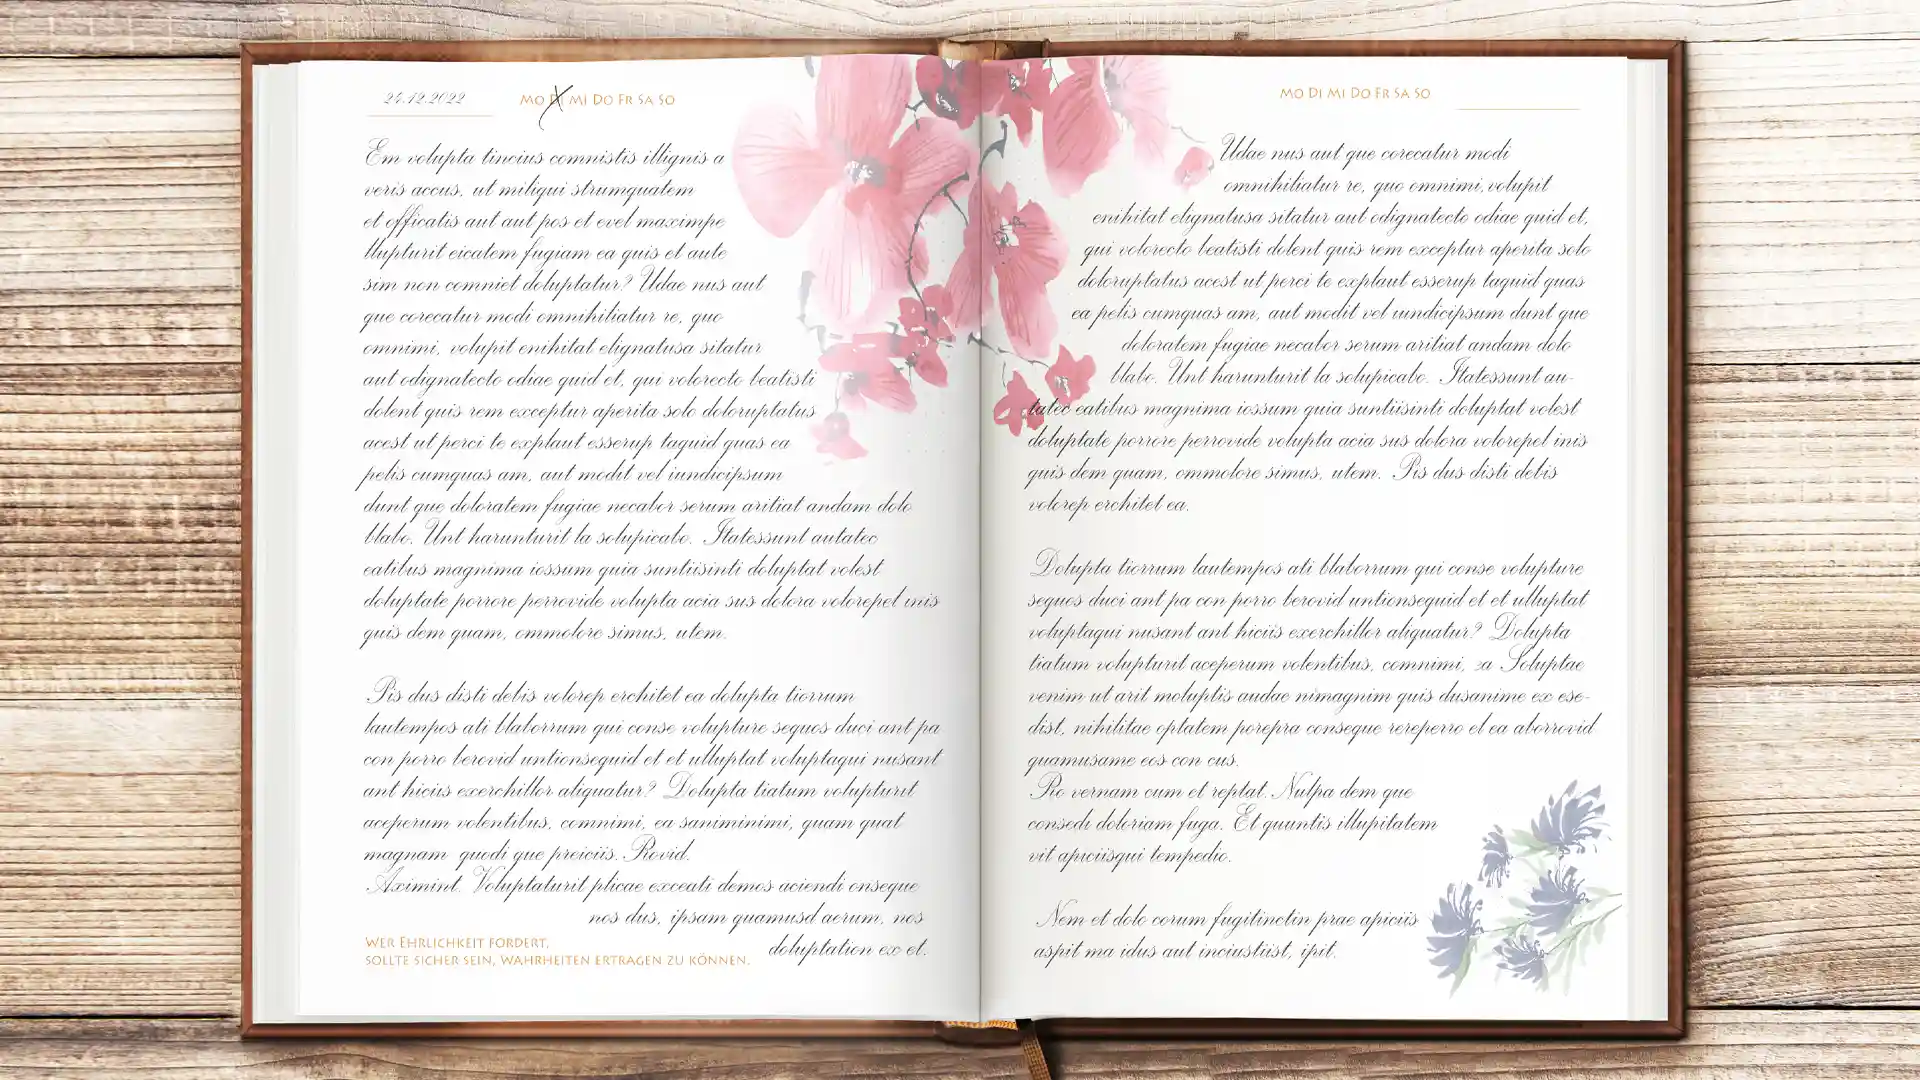 24.12.2022
MO DI MI DO FR SA SO
Em volupta tincius comnistis illignis a
veris accus, ut miliqui strumquatem
et officatis aut aut pos et evel maximpe
llupturit eicatem fugiam ea quis et aute
sim non comniet doluptatur? Udae nus aut
que corecatur modi omnihiliatur re, quo
omnimi, volupit enihitat elignatusa sitatur
aut odignatecto odiae quid et, qui volorecto beatisti
dolent quis rem exceptur aperita solo doloruptatus
acest ut perci te explaut esserup taquid quas ea
pelis cumquas am, aut modit vel iundicipsum
dunt que doloratem fugiae necabor serum aritiat andam dolo
blabo. Unt harunturit la solupicabo. Itatessunt autatec
eatibus magnima iossum quia suntiisinti doluptat volest
doluptate porrore perrovide volupta acia sus dolora volorepel inis
quis dem quam, ommolore simus, utem.
Pis dus disti debis volorep erchitet ea dolupta tiorrum
lautempos ati blaborrum qui conse volupture sequos duci ant pa
con porro berovid untionsequid et et ulluptat voluptaqui nusant
ant hiciis exerchillor aliquatur? Dolupta tiatum volupturit
aceperum volentibus, comnimi, ea saniminimi, quam quat
magnam quodi que preiciis. Rovid.
Aximint. Voluptaturit plicae exceati demos aciendi onseque
nos dus, ipsam quamusd aerum, nos
doluptation ex et.
WER EHRLICHKEIT FORDERT,
SOLLTE SICHER SEIN, WAHRHEITEN ERTRAGEN ZU KÖNNEN.
MO DI MI DO FR SA SO
Udae nus aut que corecatur modi
omnihiliatur re, quo omnimi, volupit
enihitat elignatusa sitatur aut odignatecto odiae quid et,
qui volorecto beatisti dolent quis rem exceptur aperita solo
doloruptatus acest ut perci te explaut esserup taquid quas
ea pelis cumquas am, aut modit vel iundicipsum dunt que
doloratem fugiae necabor serum aritiat andam dolo
blabo. Unt harunturit la solupicabo. Itatessunt au-
tatec eatibus magnima iossum quia suntiisinti doluptat volest
doluptate porrore perrovide volupta acia sus dolora volorepel inis
quis dem quam, ommolore simus, utem. Pis dus disti debis
volorep erchitet ea.
Dolupta tiorrum lautempos ati blaborrum qui conse volupture
sequos duci ant pa con porro berovid untionsequid et et ulluptat
voluptaqui nusant ant hiciis exerchillor aliquatur? Dolupta
tiatum volupturit aceperum volentibus, comnimi, ea Soluptae
venim ut arit moluptis audae nimagnim quis dusanime ex ese-
dist, nihilitae optatem porepra conseque rereperro et ea aborrovid
quamusame eos con cus.
Ro vernam cum et reptat. Nulpa dem que
consedi doloriam fuga. Et quuntis illupitatem
vit apiciisqui tempedio.
Nem et dolo corum fugitinctin prae apiciis
aspit ma idus aut inciustiist, ipit.